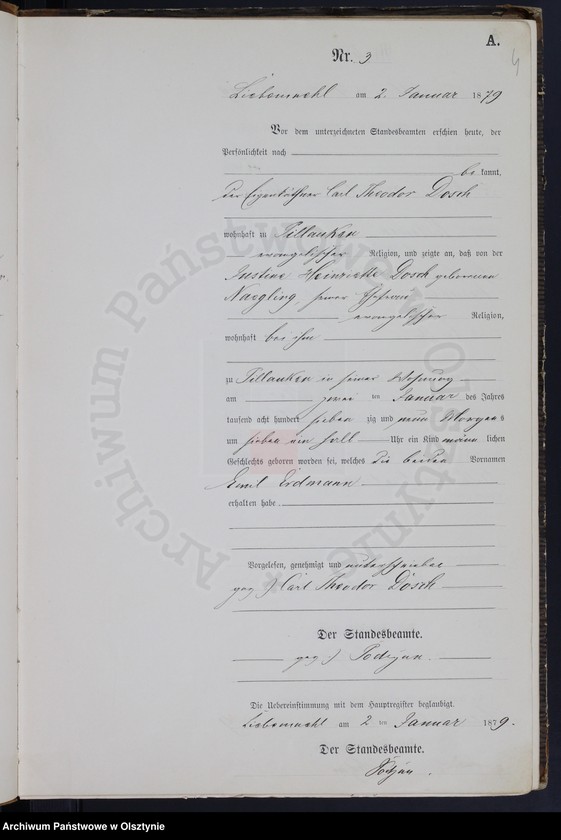 A.
4
Nr. 3
Liebemuehl am 2. Januar 1879
Vor dem unterzeichneten Standesbeamten erschien heute, der
Persönlichkeit nach
be kannt,
der Eigenkäthner Carl Theodor Dosch
wohnhaft in Pillauken
evangelischer Religion, und zeigte an, daß von der
Justine Heinriette Dosch geborenen
Naegling, seiner Ehefrau
evangelischer Religion,
wohnhaft bei ihm
zu Pillauken in seiner Wohnung
am zwei ten Januar des Jahres
tausend acht hundert sieben zig und neun Morgens
um sieben ein halb Uhr ein Kind männ lichen
Geschlechts geboren worden sei, welches die beiden Vornamen
Emil Erdmann
erhalten habe.
Vorgelesen, genehmigt und unterschrieben
gez.) Carl Theodor Dosch
Der Standesbeamte.
gez.)
Die Uebereinstimmung mit dem Hauptregister beglaubigt.
Liebemuehl am 2 ten Januar 1879.
Der Standesbeamte.
Archiwum Państwowe w Olsztynie
Archiwum Państwowe w Olsztynie